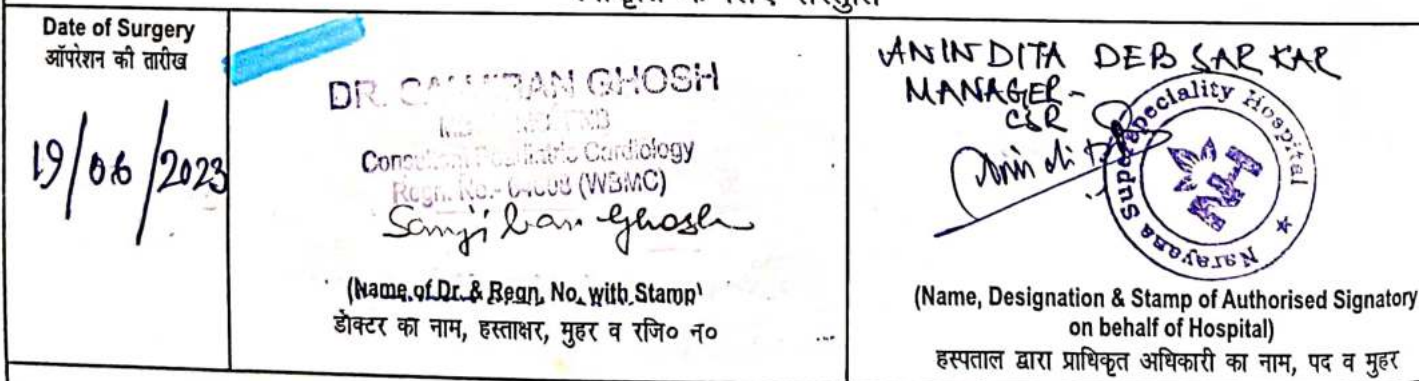 Date of Surgery
ऑपरेशन की तारीख
19/06/2023
DR. GHOSH
Consultant Paediatric Cardiology
Regn. No.- (WBMC)
Sanjiban Ghosh
(Name of Dr. & Regn. No. with Stamp)
डॉक्टर का नाम, हस्ताक्षर, मुहर व रजि० न०
ANINDITA DEB SARKAR
MANAGER-
CSR
Narayana Superspeciality Hospital
(Name, Designation & Stamp of Authorised Signatory
on behalf of Hospital)
हस्पताल द्वारा प्राधिकृत अधिकारी का नाम, पद व मुहर